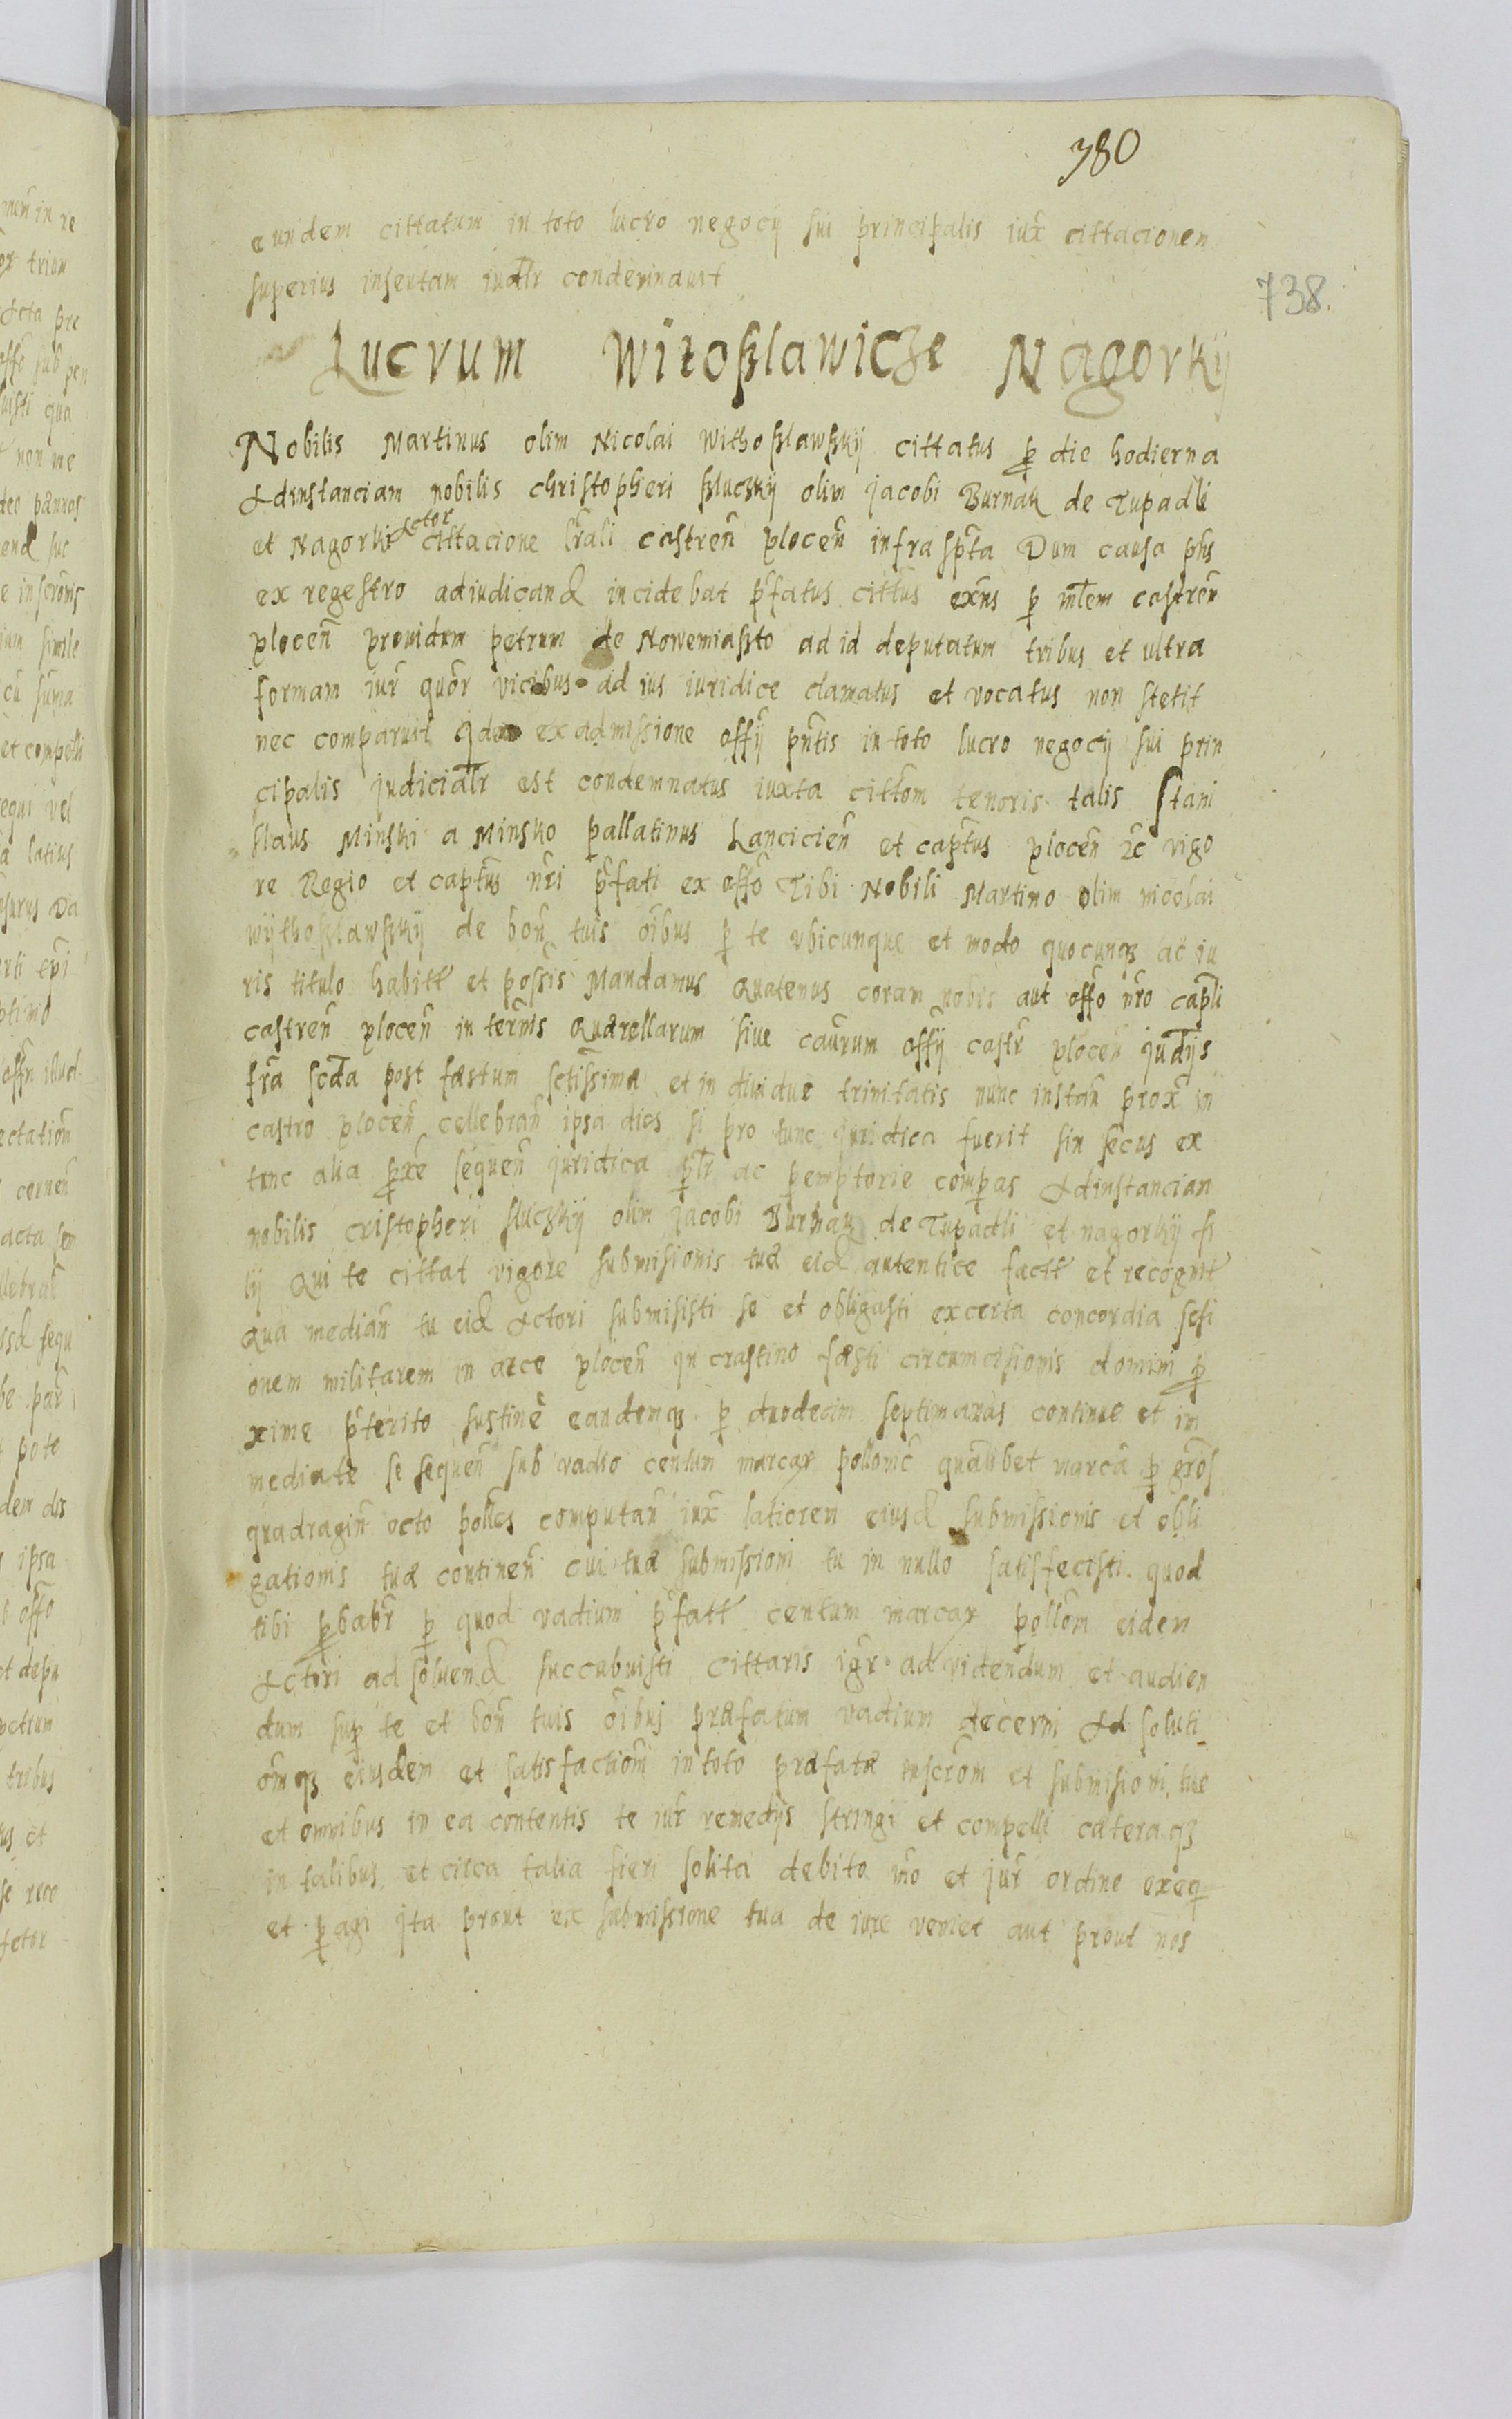 380
eundem cittatum in toto lucro negocij sui principalis iux cittacionem
superius insertam iudlr condemnauit
738.
Lucrum Witoßlawicze Nagorkij
Nobilis Martinus olim Nicolai Withoßlawßkij cittatus p die hodierna
Adinstanciam nobilis Christopheri Sluczkij olim Jacobi Burnak de Tupadli
Actor
et Nagorki cittacione lrali castren plocen infra spta Dum causa phs
ex regestro adiudicand incidebat pfatus cittus exns p mlem castren
plocen prouidum petrum de Nowemiasto ad id deputatum tribus et ultra
formam iur quor vicibus ad ius iuridice clamatus et vocatus non stetit
nec comparuit ex admissione offij pntis in toto lucro negocij sui prin
cipalis judicialr est condemnatus iuxta cittom tenoris talis Stani
slaus Minski a Minsko pallatinus Lancicien et captus plocen zc vigo
re Regio et captus nri pfati ex offo Tibi Nobili Martino olim nicolai
wythoßlawßkij de bon tuis oibus p te vbicunque et modo quocunqz ac iu
ris titulo habitt et possis Mandamus Quatenus coram nobis aut offo nro capli
castren plocen in termis Quærellarum siue caurum offij castr plocen judijs
fra scda post fæstum sctissimæ et indiuiduæ trinitatis nunc instan prox in
castro plocen cellebran ipsa dies si pro tunc juridica fuerit sin secus ex
tunc alia pxe sequen juridica plr ac pemptorie compas Adinstanciam
nobilis Cristopheri Sluczkij olim Jacobi Burnak de Tupadli et nagorkij fi
lij Qui te cittat vigore submisionis tuæ eid autentice factt et recognit
Qua median tu eid Actori submisisti se et obligasti ex certa concordia sesi
onem militarem in arce plocen in crastino fæsti circumcisionis domini p
xime pterito sustine eandemqz p duodecim septimanas continue et im
mediate se sequen sub vadio centum marcar pollonic quamlibet marca p gros
quadragin octo polles computan iux latiorem eiusd submissionis et obli
gationis tuæ continen cui tuæ submissioni tu in nullo satisfecisti quod
tibi pbabr p quod vadium pfatt centum marcar pollom eidem
Actori ad soluend succubuisti Cittaris igr ad videndum et audien
dum sup te et bon tuis oibus præfatum vadium decerni Ad soluti
omqz eiusdem et satisfactiom in toto præfatæ inscrom et submisioni tuæ
et omnibus in ea contentis te iur remedijs stringi et compelli cæteraqz
in talibus et circa talia fieri solita debito mo et jur ordine exeq
et pagi jta prout ex submissione tua de iure veniet aut prout nos